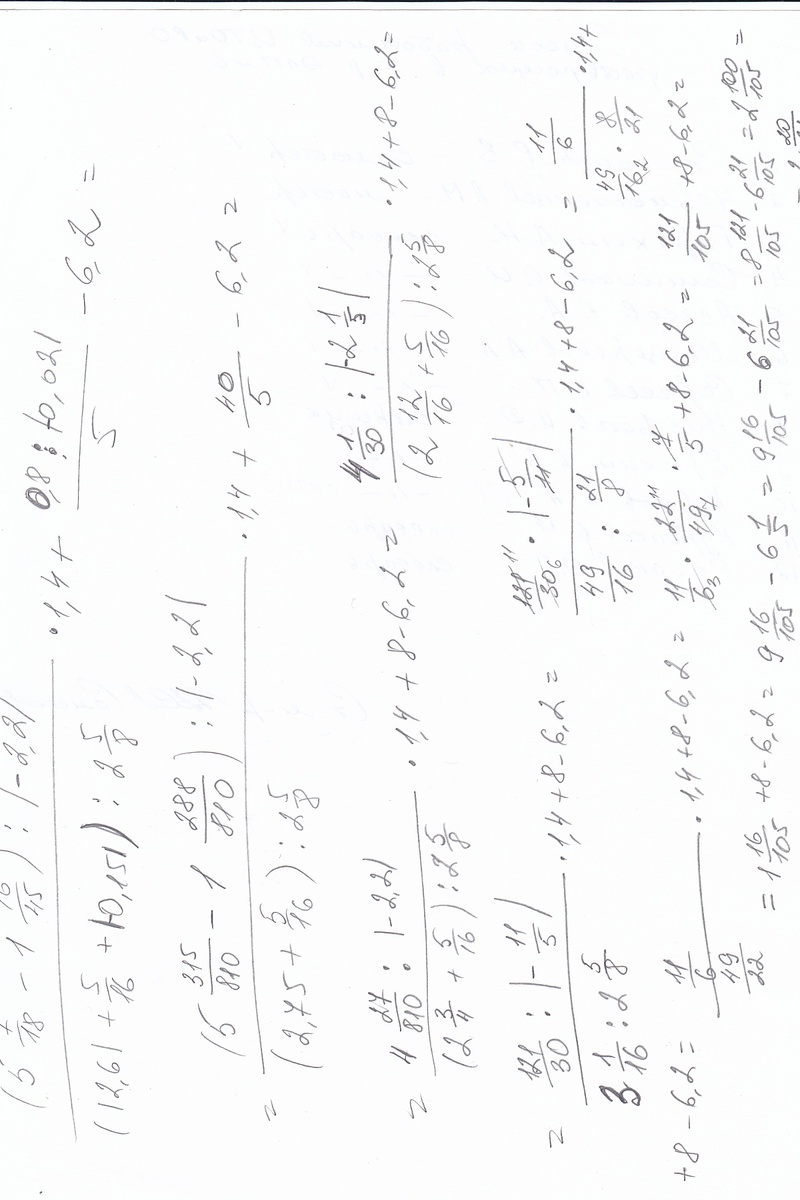 (5 7/18 - 1 16/45) : |-2,2| / (|2,6| + 5/16 + |-0,15|) : 2 5/8 · 1,4 + 0,8 : |-0,02| / 5 - 6,2 =
= (5 315/810 - 1 288/810) : |-2,2| / (2,75 + 5/16) : 2 5/8 · 1,4 + 40/5 - 6,2 =
= 4 27/810 : |-2,2| / (2 3/4 + 5/16) : 2 5/8 · 1,4 + 8 - 6,2 = 4 1/30 : |-2 1/5| / (2 12/16 + 5/16) : 2 5/8 · 1,4 + 8 - 6,2 =
= 121/30 : |-11/5| / 3 1/16 : 2 5/8 · 1,4 + 8 - 6,2 = 121 11/30 6 · |-5/11| / 49/16 : 21/8 · 1,4 + 8 - 6,2 = 11/6 / 49/16 2 · 8/21 · 1,4 +
+ 8 - 6,2 = 11/6 / 49/22 · 1,4 + 8 - 6,2 = 11/6 3 · 22 11/49 7 · 7/5 + 8 - 6,2 = 121/105 + 8 - 6,2 =
= 1 16/105 + 8 - 6,2 = 9 16/105 - 6 1/5 = 9 16/105 - 6 21/105 = 8 121/105 - 6 21/105 = 2 100/105 =